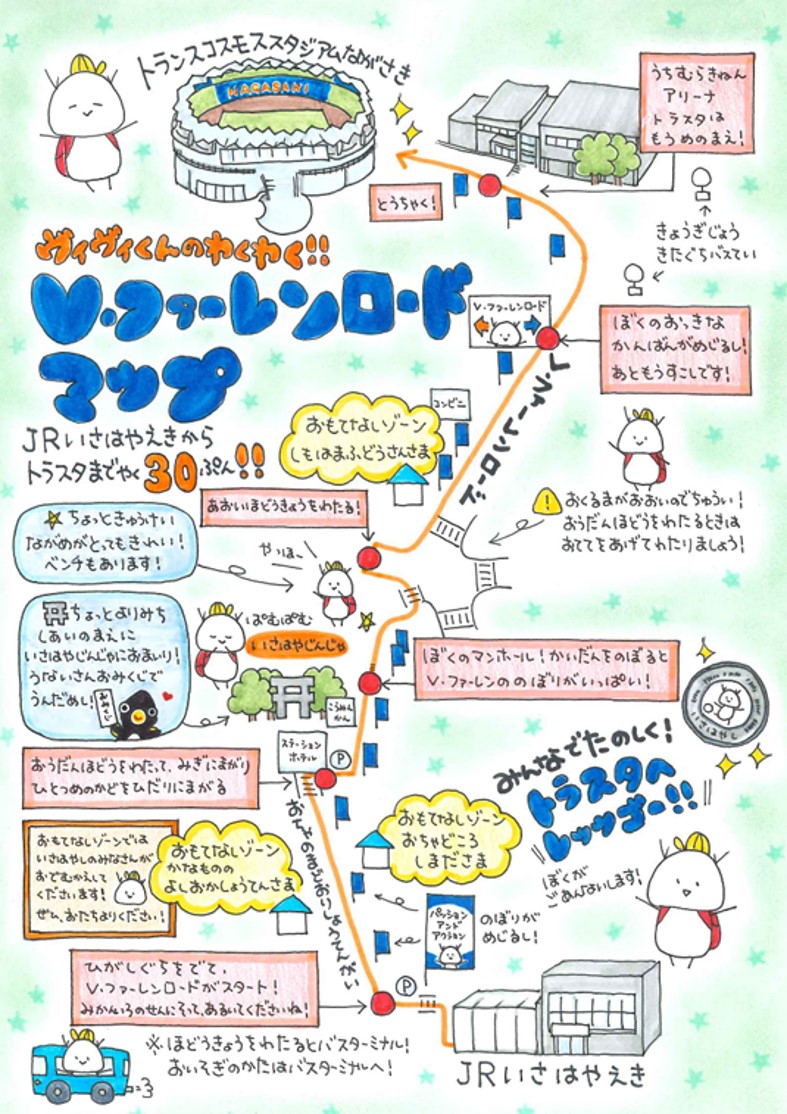 トランスコスモススタジアムながさき
NAGASAKI
うちむらきねん
アリーナ
トラスタは
もうめのまえ!
とうちゃく!
きょうぎじょう
きたぐちバスてい
ヴィヴィくんのわくわく!!
V・ファーレンロード
マップ
JRいさはやえきから
トラスタまでやく30ぷん!!
V・ファーレンロード
ぼくのおっきな
かんばんがめじるし!
あともうすこしです!
V・ファーレンロード
コンビニ
おもてなしゾーン
しもはまふどうさんさま
あおいほどうきょうをわたる!
おくるまがおおいのでちゅうい!
おうだんほどうをわたるときは
おててをあげてわたりましょう!
ちょっときゅうけい
ながめがとってもきれい!
ベンチもあります!
やっほー
ちょっとよりみち
しあいのまえに
いさはやじんじゃにおまいり!
うないさんおみくじで
うんだめし!
ぱむぱむ
いさはやじんじゃ
こうみんかん
ぼくのマンホール!かいだんをのぼると
V・ファーレンののぼりがいっぱい!
いさはやし
ステーション
ホテル
P
おうだんほどうをわたって、みぎにまがり
ひとつめのかどをひだりにまがる
みんなでたのしく!
トラスタへ
レッツゴー!!
ぼくが
ごあんないします!
おもてなしゾーンでは
いさはやしのみなさんが
おでむかえして
くださいます!
ぜひ、おたちよりください!
おもてなしゾーン
かなものの
よしおかしょうてんさま
おもてなしゾーン
おちゃどころ
しまださま
パッション
アンド
アクション
のぼりが
めじるし!
ひがしぐちをでて、
V・ファーレンロードがスタート!
みかんいろのせんにそって、あるいてくださいね!
P
※ほどうきょうをわたるとバスターミナル!
おいそぎのかたはバスターミナルへ!
JRいさはやえき